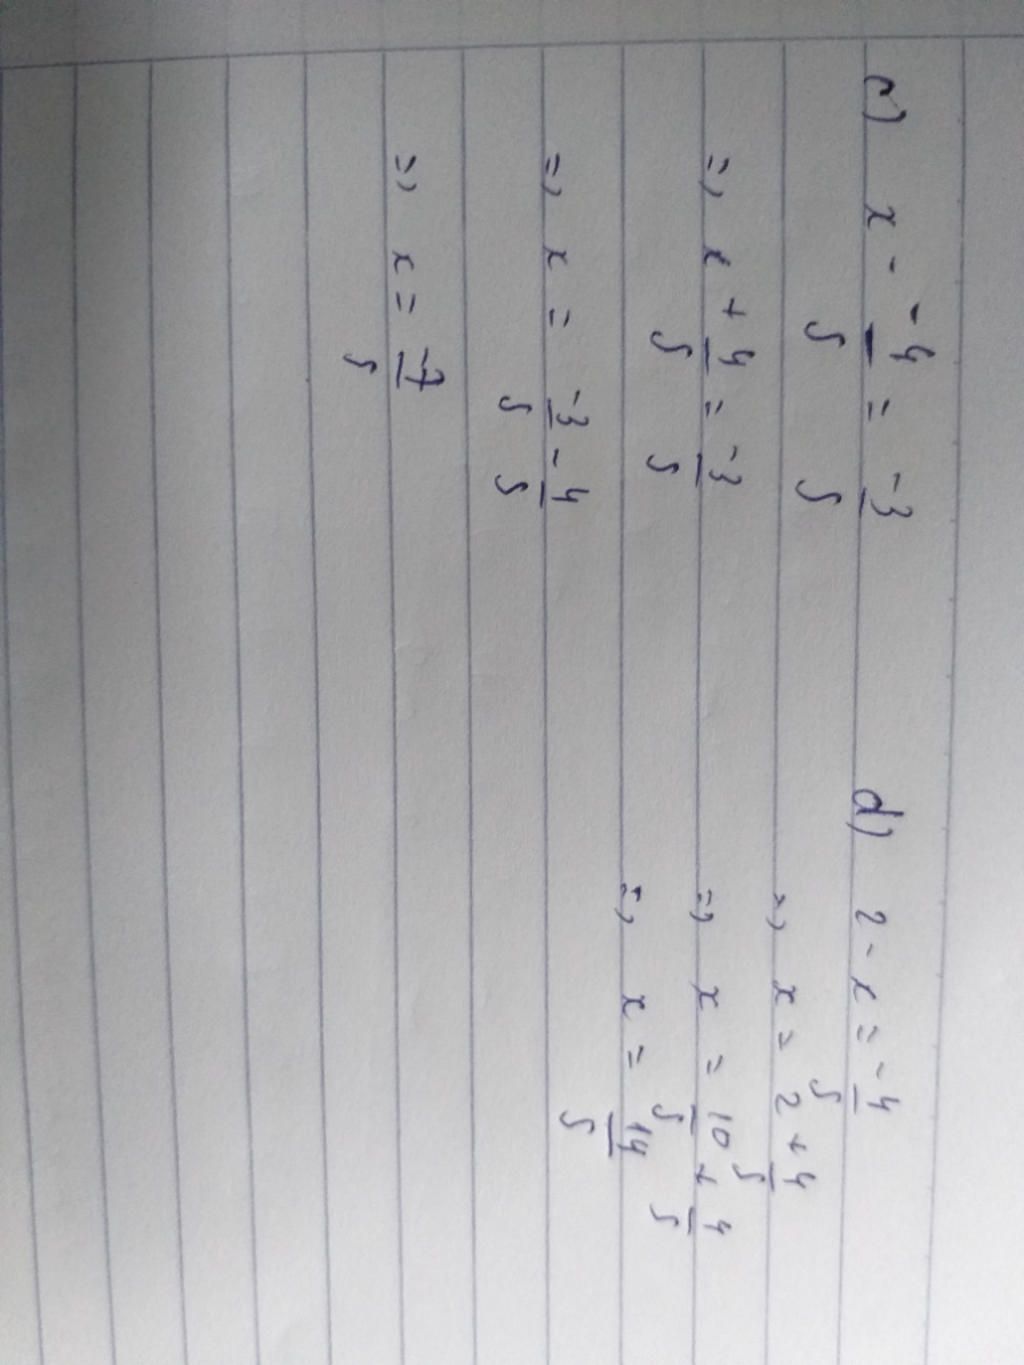 c) x - -4/5 = -3/5
=> x + 4/5 = -3/5
=> x = -3/5 - 4/5
=> x = -7/5
d) 2 - x = -4/5
=> x = 2 + 4/5
=> x = 10/5 + 4/5
=> x = 14/5